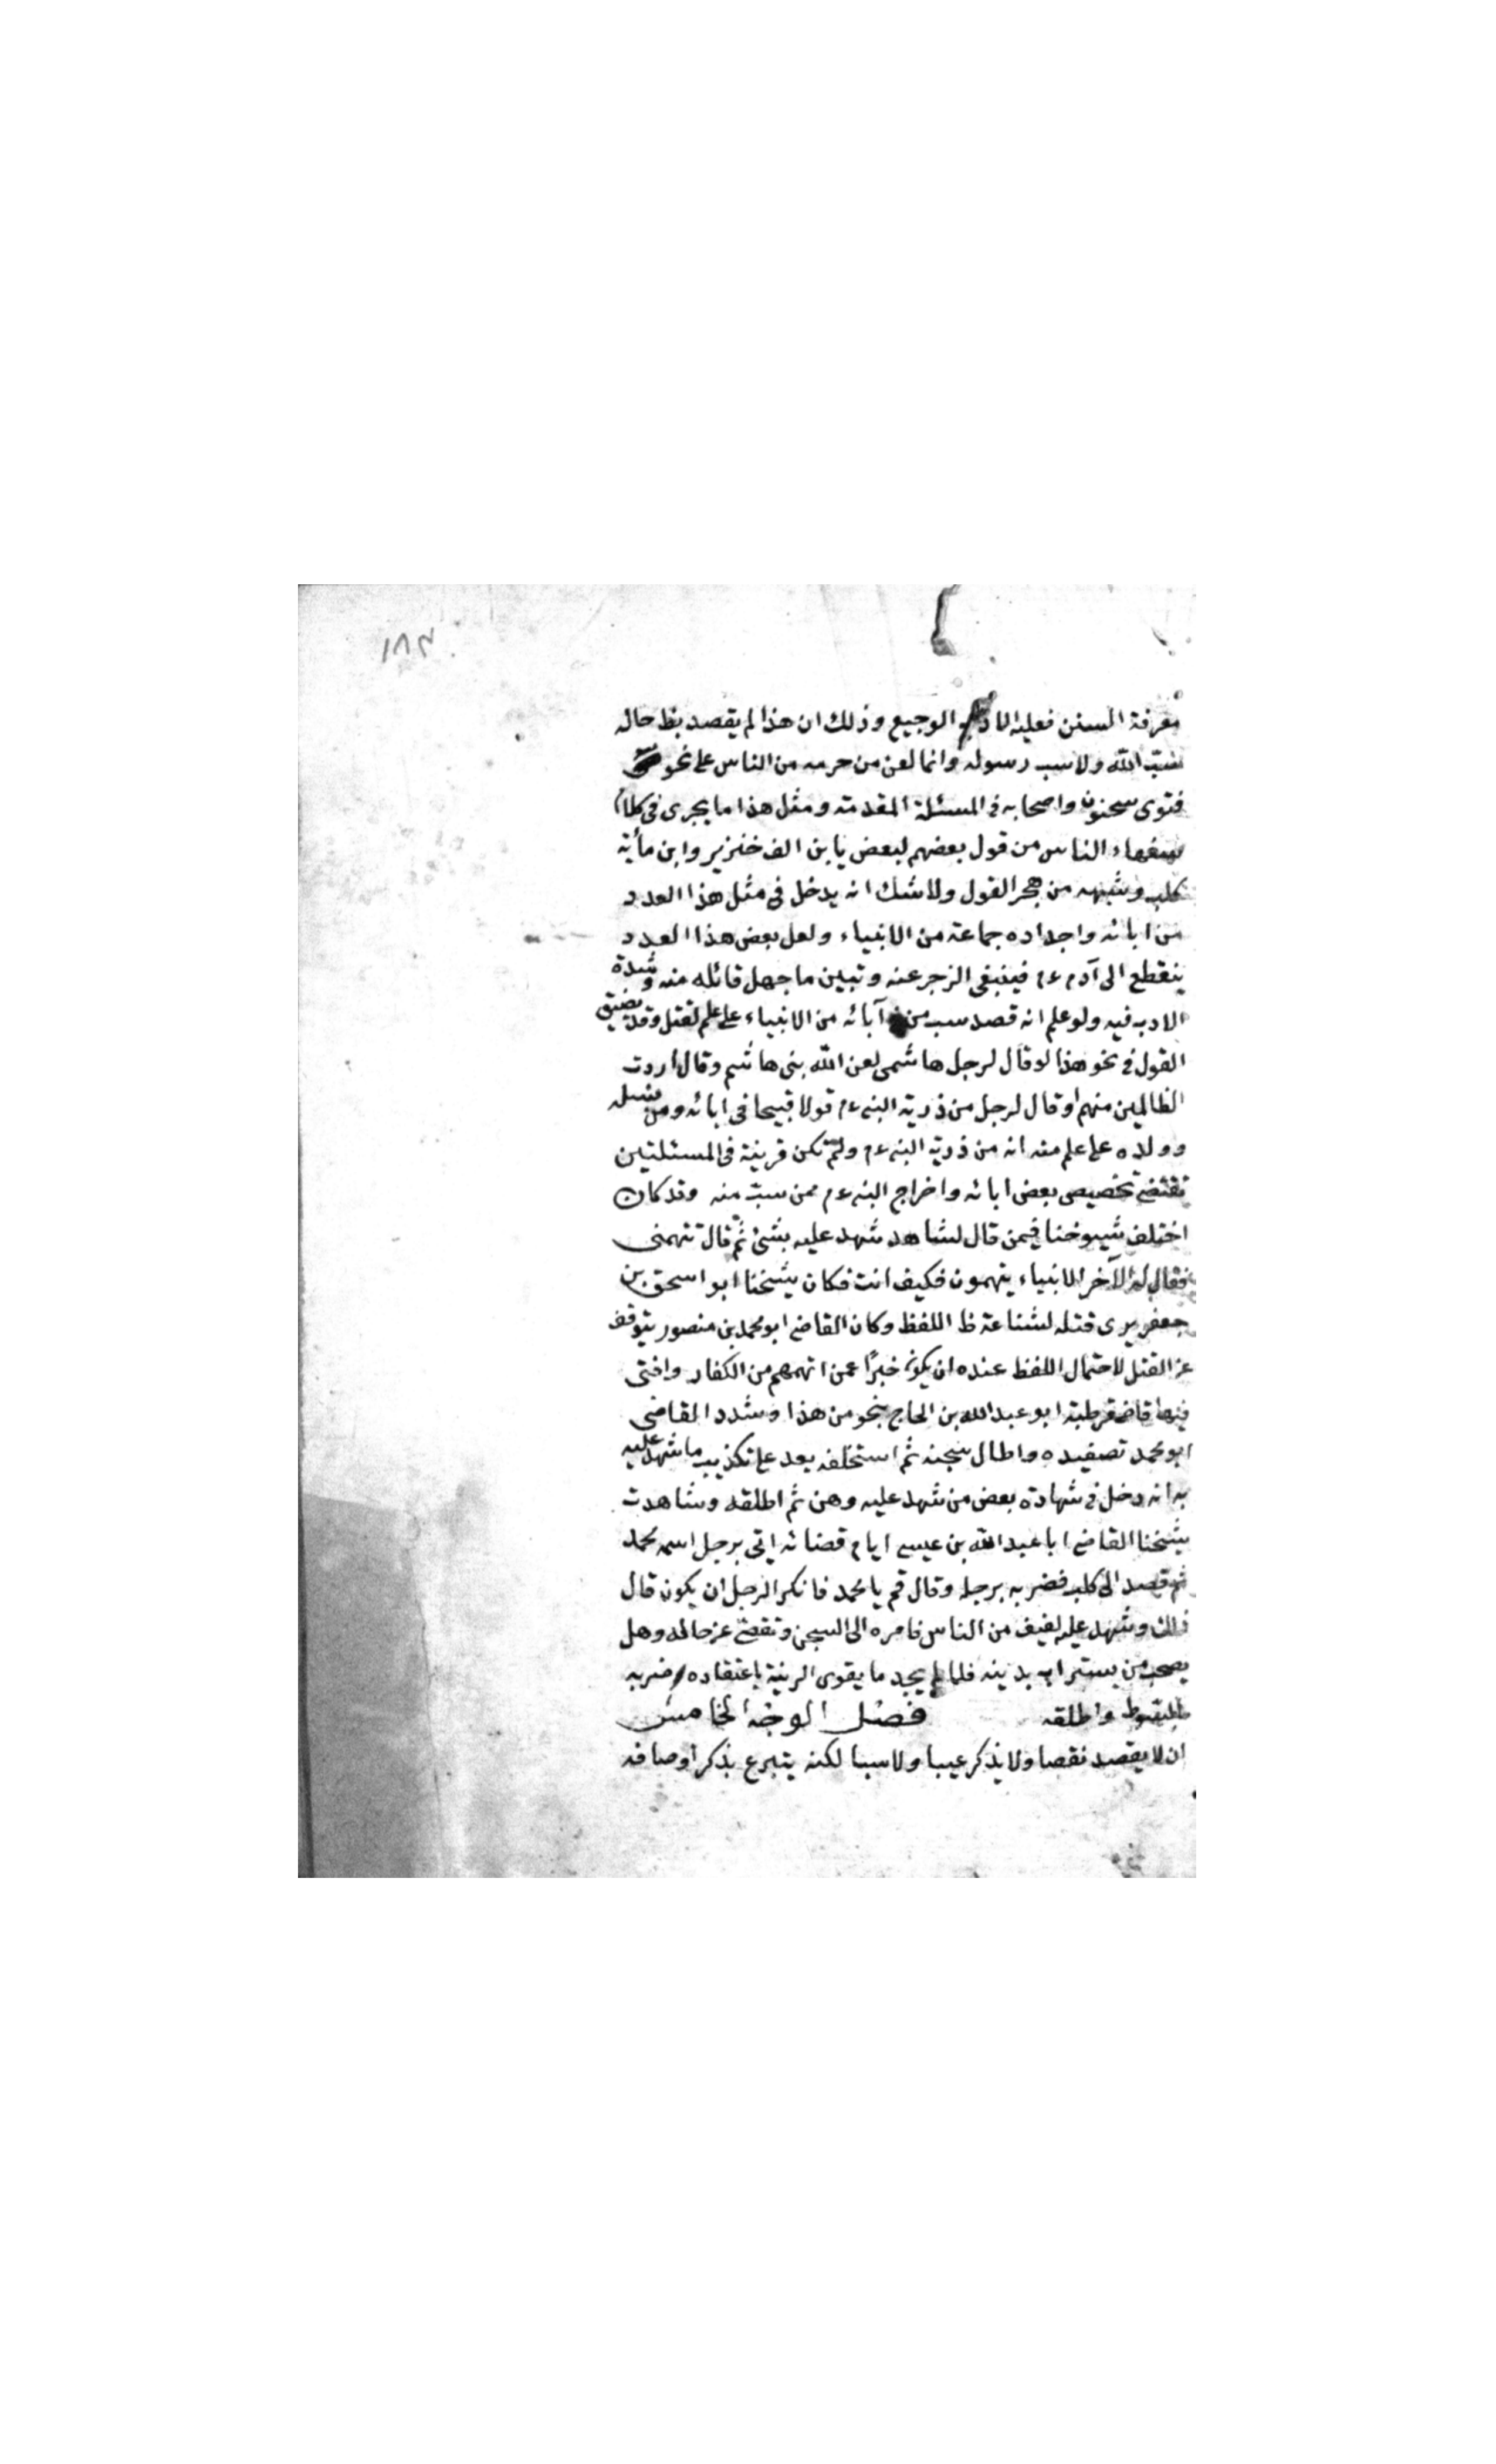 ١٨٣
معرفة السنن فعليه الادب الوجيع وذلك ان هذا لم يقصد بظ حاله
سبّ الله ولا سب رسوله وانما لعن من حرمه من الناس على نحو
فتوى سحنون واصحابه في المسئلة المقدمة ومثل هذا ما يجرى في كلام
سفهاء الناس من قول بعضهم لبعض يا بن الف خنزير وابن مأية
كلب وشبهه من هجر القول ولا شك انه يدخل في مثل هذا العدد
من ابائه واجداده جماعة من الانبياء ولعل بعض هذا العدد
ينقطع الى آدم ءم فينبغى الزجر عنه وتبين ما جهل قائله منه وشدة
الادب فيه ولو علم انه قصد سب من آبائه من الانبياء على علم لقتل وقد يضيق
القول في نحو هذا لو قال لرجل هاشمى لعن الله بنى هاشم وقال اردت
الظالمين منهم او قال لرجل من ذرية النبى ءم قولا قبيحا في ابائه ومن نسله
وولده على علم منه انه من ذرية النبى ءم ولم تكن قرينة في المسئلتين
تقتضى تخصيص بعض ابائه واخراج النبى ءم ممن سبّ منه وقد كان
اختلف شيوخنا فيمن قال لشاهد شهد عليه بشئ ثم قال تتهمنى
فقال له الآخر الانبياء يتهمون فكيف انت فكان شيخنا ابو اسحق بن
جعفر يرى قتله لشناعة ظ اللفظ وكان القاضى ابو محمد بن منصور يتوقف
عن القتل لاحتمال اللفظ عنده ان يكون خبرًا عمن اتهمهم من الكفار وافتى
فيها قاضى قرطبة ابو عبد الله بن الحاج بنحو من هذا وشدد القاضى
ابو محمد تصفيده واطال سجنه ثم استخلفه بعد على تكذيب ما شهد عليه
به انه دخل في شهادة بعض من شهد عليه وهن ثم اطلقه وشاهدت
شيخنا القاضى ابا عبد الله بن عيسى ايام قضائه اتى برجل اسمه محمد
ثم قصد الى كلب فضربه برجله وقال قم يا محمد فانكر الرجل ان يكون قال
ذلك وشهد عليه لفيف من الناس فامره الى السجن وتقصى عن حاله وهل
يصحب من يستراب بدينه فلما لم يجد ما يقوى الريبة باعتقاده ضربه
بالسوط واطلقه فصل الوجه الخامس
ان لا يقصد نقصا ولا يذكر عيبا ولا سبا لكنه يتبرع بذكر اوصافه